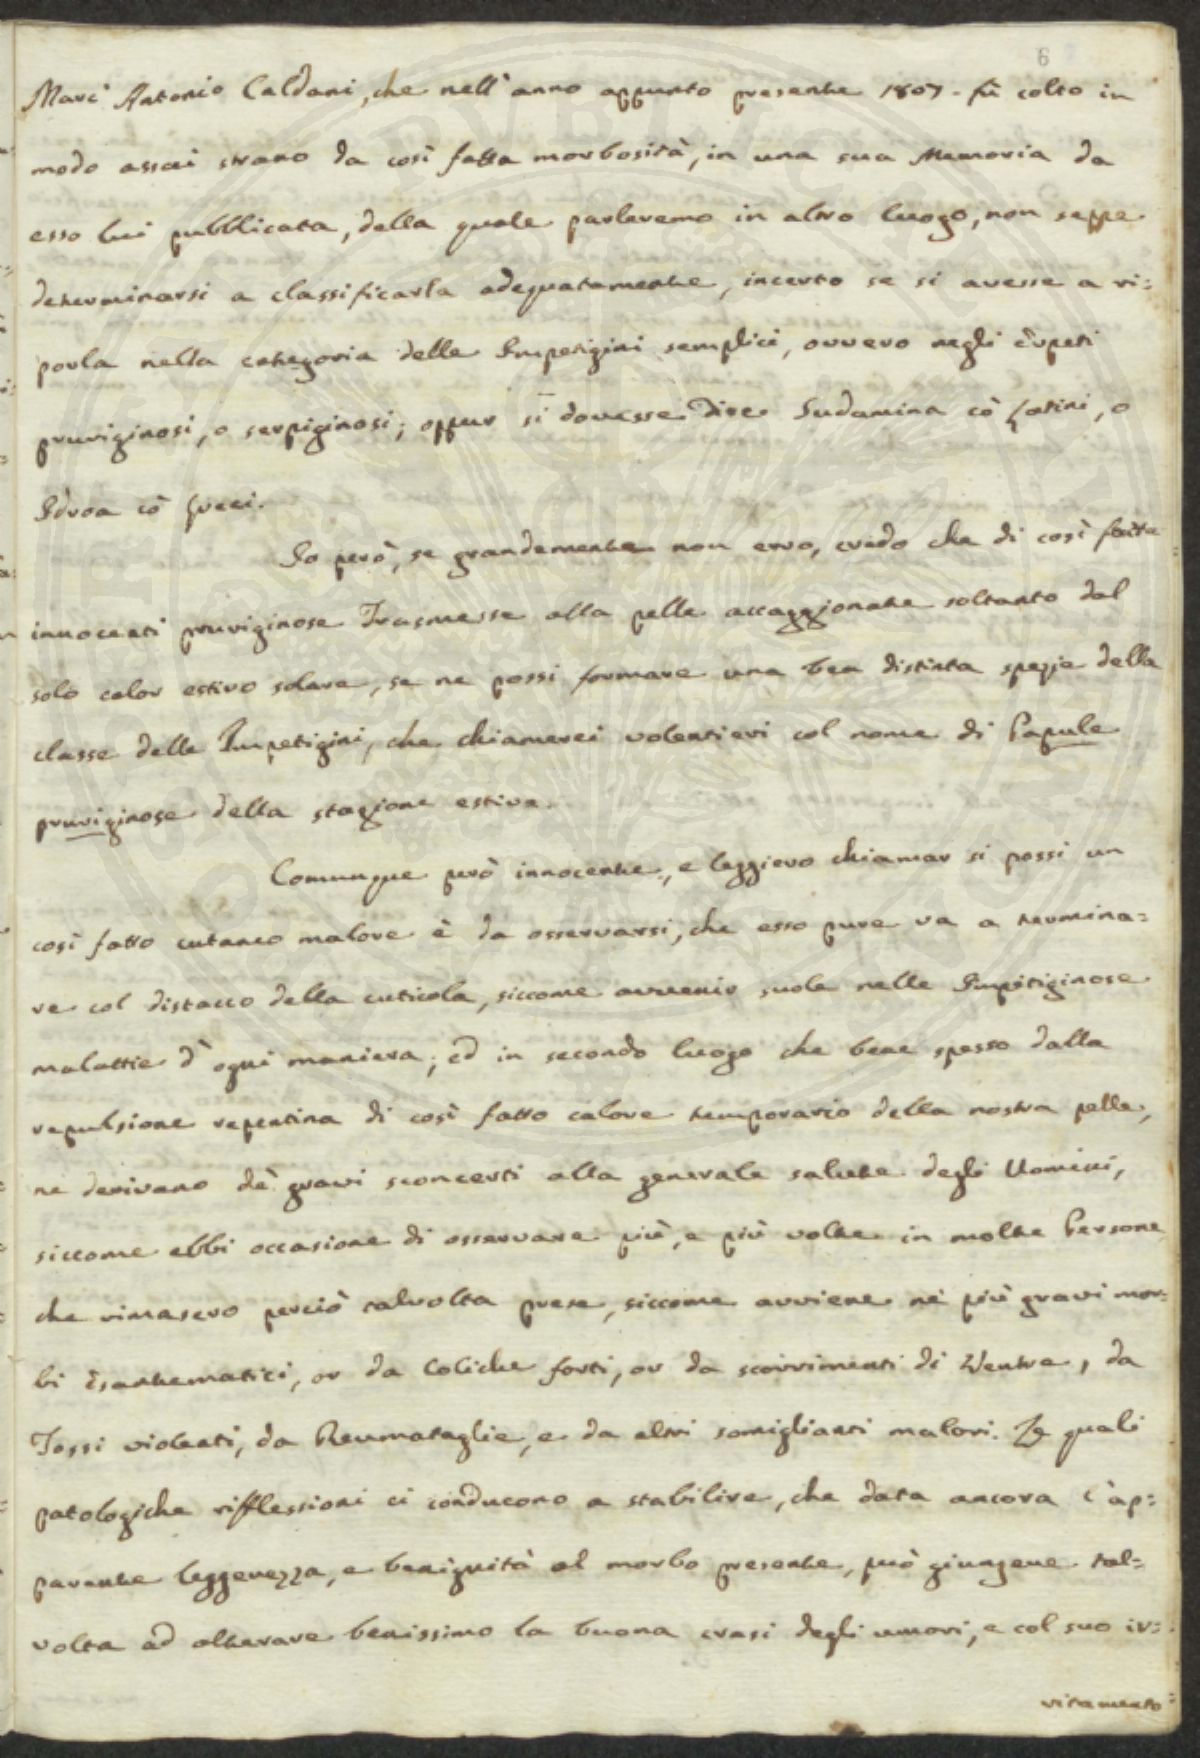 6
Marc' Antonio Caldani, che nell'anno appunto presente 1807. fù colto in
modo assai strano da così fatta morbosità, in una sua Memoria da
esso lui pubblicata, della quale parleremo in altro luogo, non seppe
determinarsi a classificarla adeguatamente, incerto se si avesse a ri=
porla nella categoria delle Impetigini semplici, ovvero negli Erpeti
pruriginosi, o serpiginosi; oppur si dovesse dire Sudamina cò Latini, o
Idroa cò Greci.
Io però, se grandemente non erro, credo che di così fatte
innocenti pruriginose Trasmesse alla pelle accaggionate soltanto dal
solo calor estivo solare, se ne possi formare una ben distinta spezje della
classe delle Impetigini, che chiamerei volentieri col nome di Papule
pruriginose della stagione estiva.
Comunque però innocente, e leggiero chiamar si possi un
così fatto cutaneo malore è da osservarsi, che esso pure va a termina=
re col distacco della cuticola, siccome avvenir suole nelle Impitiginose
malattie d'ogni maniera; ed in secondo luogo che bene spesso dalla
repulsione repentina di così fatto calore temporario della nostra pelle,
ne derivano dè gravi sconcerti alla generale salute degli Uomini,
siccome ebbi occasione di osservare più, e più volte in molte Persone
che rimasero perciò talvolta prese, siccome avviene nè più gravi mor=
bi Esantematici, or da Coliche forti, or da scorrimenti di Ventre, da
Tossi violenti, da Reumataglie, e da altri somiglianti malori. Le quali
patologiche rifflessioni ci conducono a stabilire, che data ancora l'ap=
parente leggerezza, e benignità al morbo presente, può giungere tal=
volta ad alterare benissimo la buona crasi degli umori, e col suo ir=
ritamento